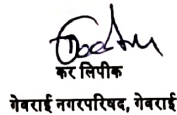 कर लिपीक
गेवराई नगरपरिषद, गेवराई